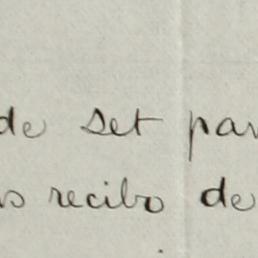 de set par
os recibo de